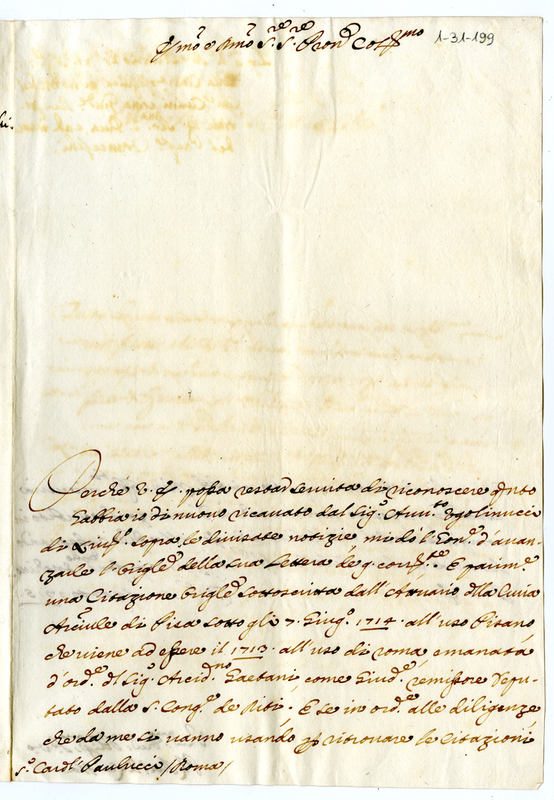 Em̃o e Rmo S.re S.re Pron. Col.mo
1-31-199
Perche V. E. possa restar servita di riconoscere q̃nto
habbia io di nuovo ricavato dal Sig.r Avv.to Ugolinucci
di sopra le divisate notizie mi dò l'hon.e d'avan-
zarle l'origle della sua lettera de 9. corr.te E parim.e
una Citazione origle sottoscritta dall'Attuario della Curia
Arciule di Pisa sotto gli 7. Giug.o 1714. all'uso Pisano
che viene ad essere il 1713. all'uso di roma, emanata
d'ord.e del Sig.r Arcid.no Gaetani, come Giud.e remissore Depu-
tato dalla S. Cong.e de Riti. E se in ord.e alle diligenze
che da me si vanno usando p ritrovare le Citazioni
S.r Card.l Paulucci /Roma/